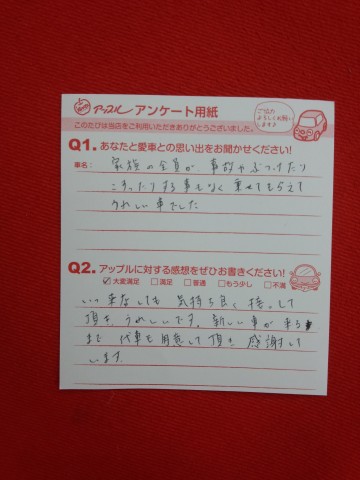 Apple アップル アンケート用紙
ご協力
よろしくお願い
します♪
このたびは当店をご利用いただきありがとうございました。
Q1. あなたと愛車との思い出をお聞かせください!
車名: 家族の全員が 事故やぶつけたり
こすったりする事もなく 乗せてもらえて
うれしい車でした
Q2. アップルに対する感想をぜひお書きください!
☑大変満足 □満足 □普通 □もう少し □不満
いつ来店しても 気持ち良く 接して
頂き、うれしいです。新しい車が 来る
まで 代車も用意して頂き 感謝して
います。